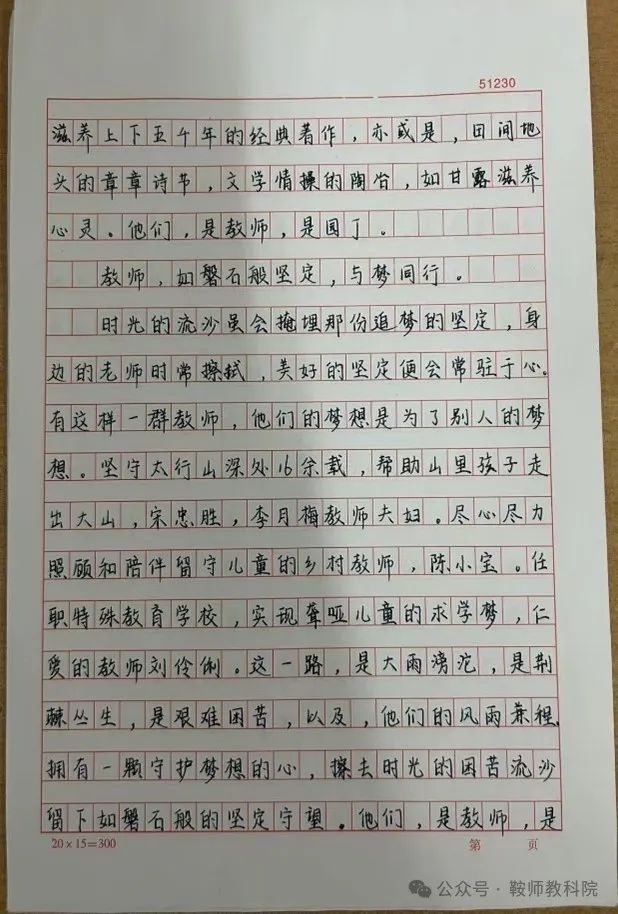 51230
滋养上下五千年的经典著作，亦或是，田间地
头的章章诗节，文学情操的陶冶，如甘露滋养
心灵。他们，是教师，是园丁。
教师，如磐石般坚定，与梦同行。
时光的流沙虽会掩埋那份追梦的坚定，身
边的老师时常擦拭，美好的坚定便会常驻于心。
有这样一群教师，他们的梦想是为了别人的梦
想。坚守太行山深处16余载，帮助山里孩子走
出大山，宋忠胜，李月梅教师夫妇。尽心尽力
照顾和陪伴留守儿童的乡村教师，陈小宝。任
职特殊教育学校，实现聋哑儿童的求学梦，仁
爱的教师刘伶俐。这一路，是大雨滂沱，是荆
棘丛生，是艰难困苦，以及，他们的风雨兼程。
拥有一颗守护梦想的心，擦去时光的困苦流沙
留下如磐石般的坚定守望。他们，是教师，是
20×15=300 第 页
公众号·鞍师教科院